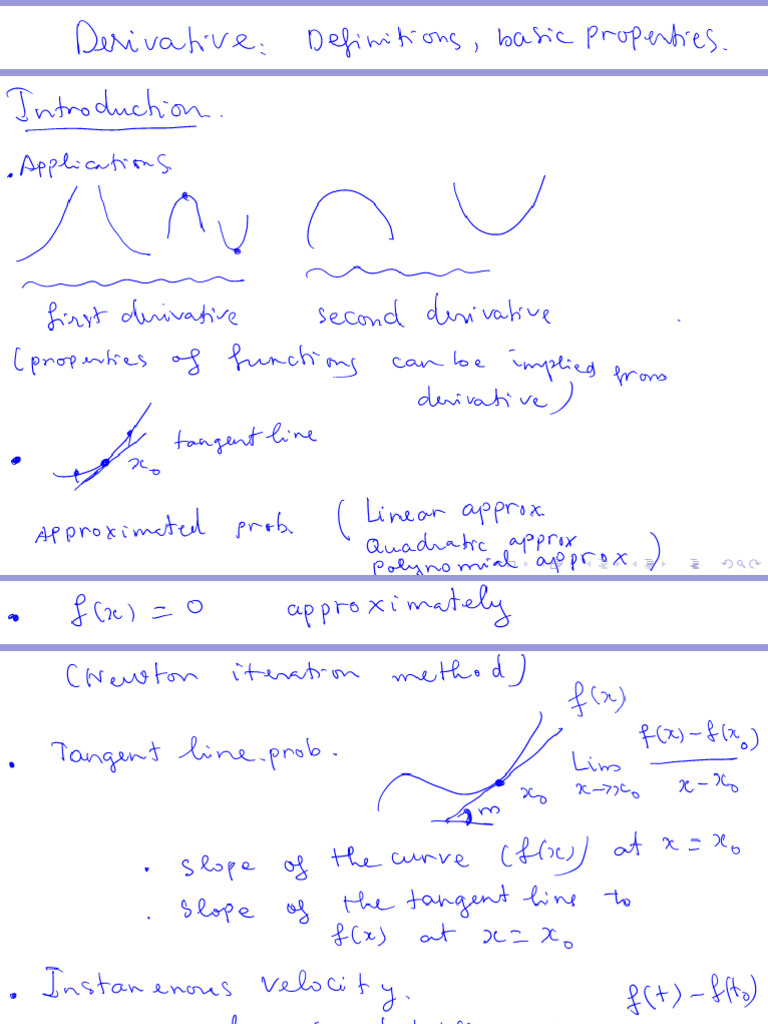 Derivative: Definitions, basic properties.
Introduction.
• Applications
first derivative second derivative
(properties of functions can be implied from
derivative)
• x₀ tangent line
Approximated prob. (Linear approx.
Quadratic approx
Polynomial approx)
• f(x) = 0 approximately
(Newton iteration method)
f(x)
• Tangent line prob. Lim x→x₀ f(x)-f(x₀) / x-x₀
x₀
m
• slope of the curve (f(x)) at x = x₀
• slope of the tangent line to
f(x) at x = x₀
• Instanenous velocity.
f(t) - f(t₀)